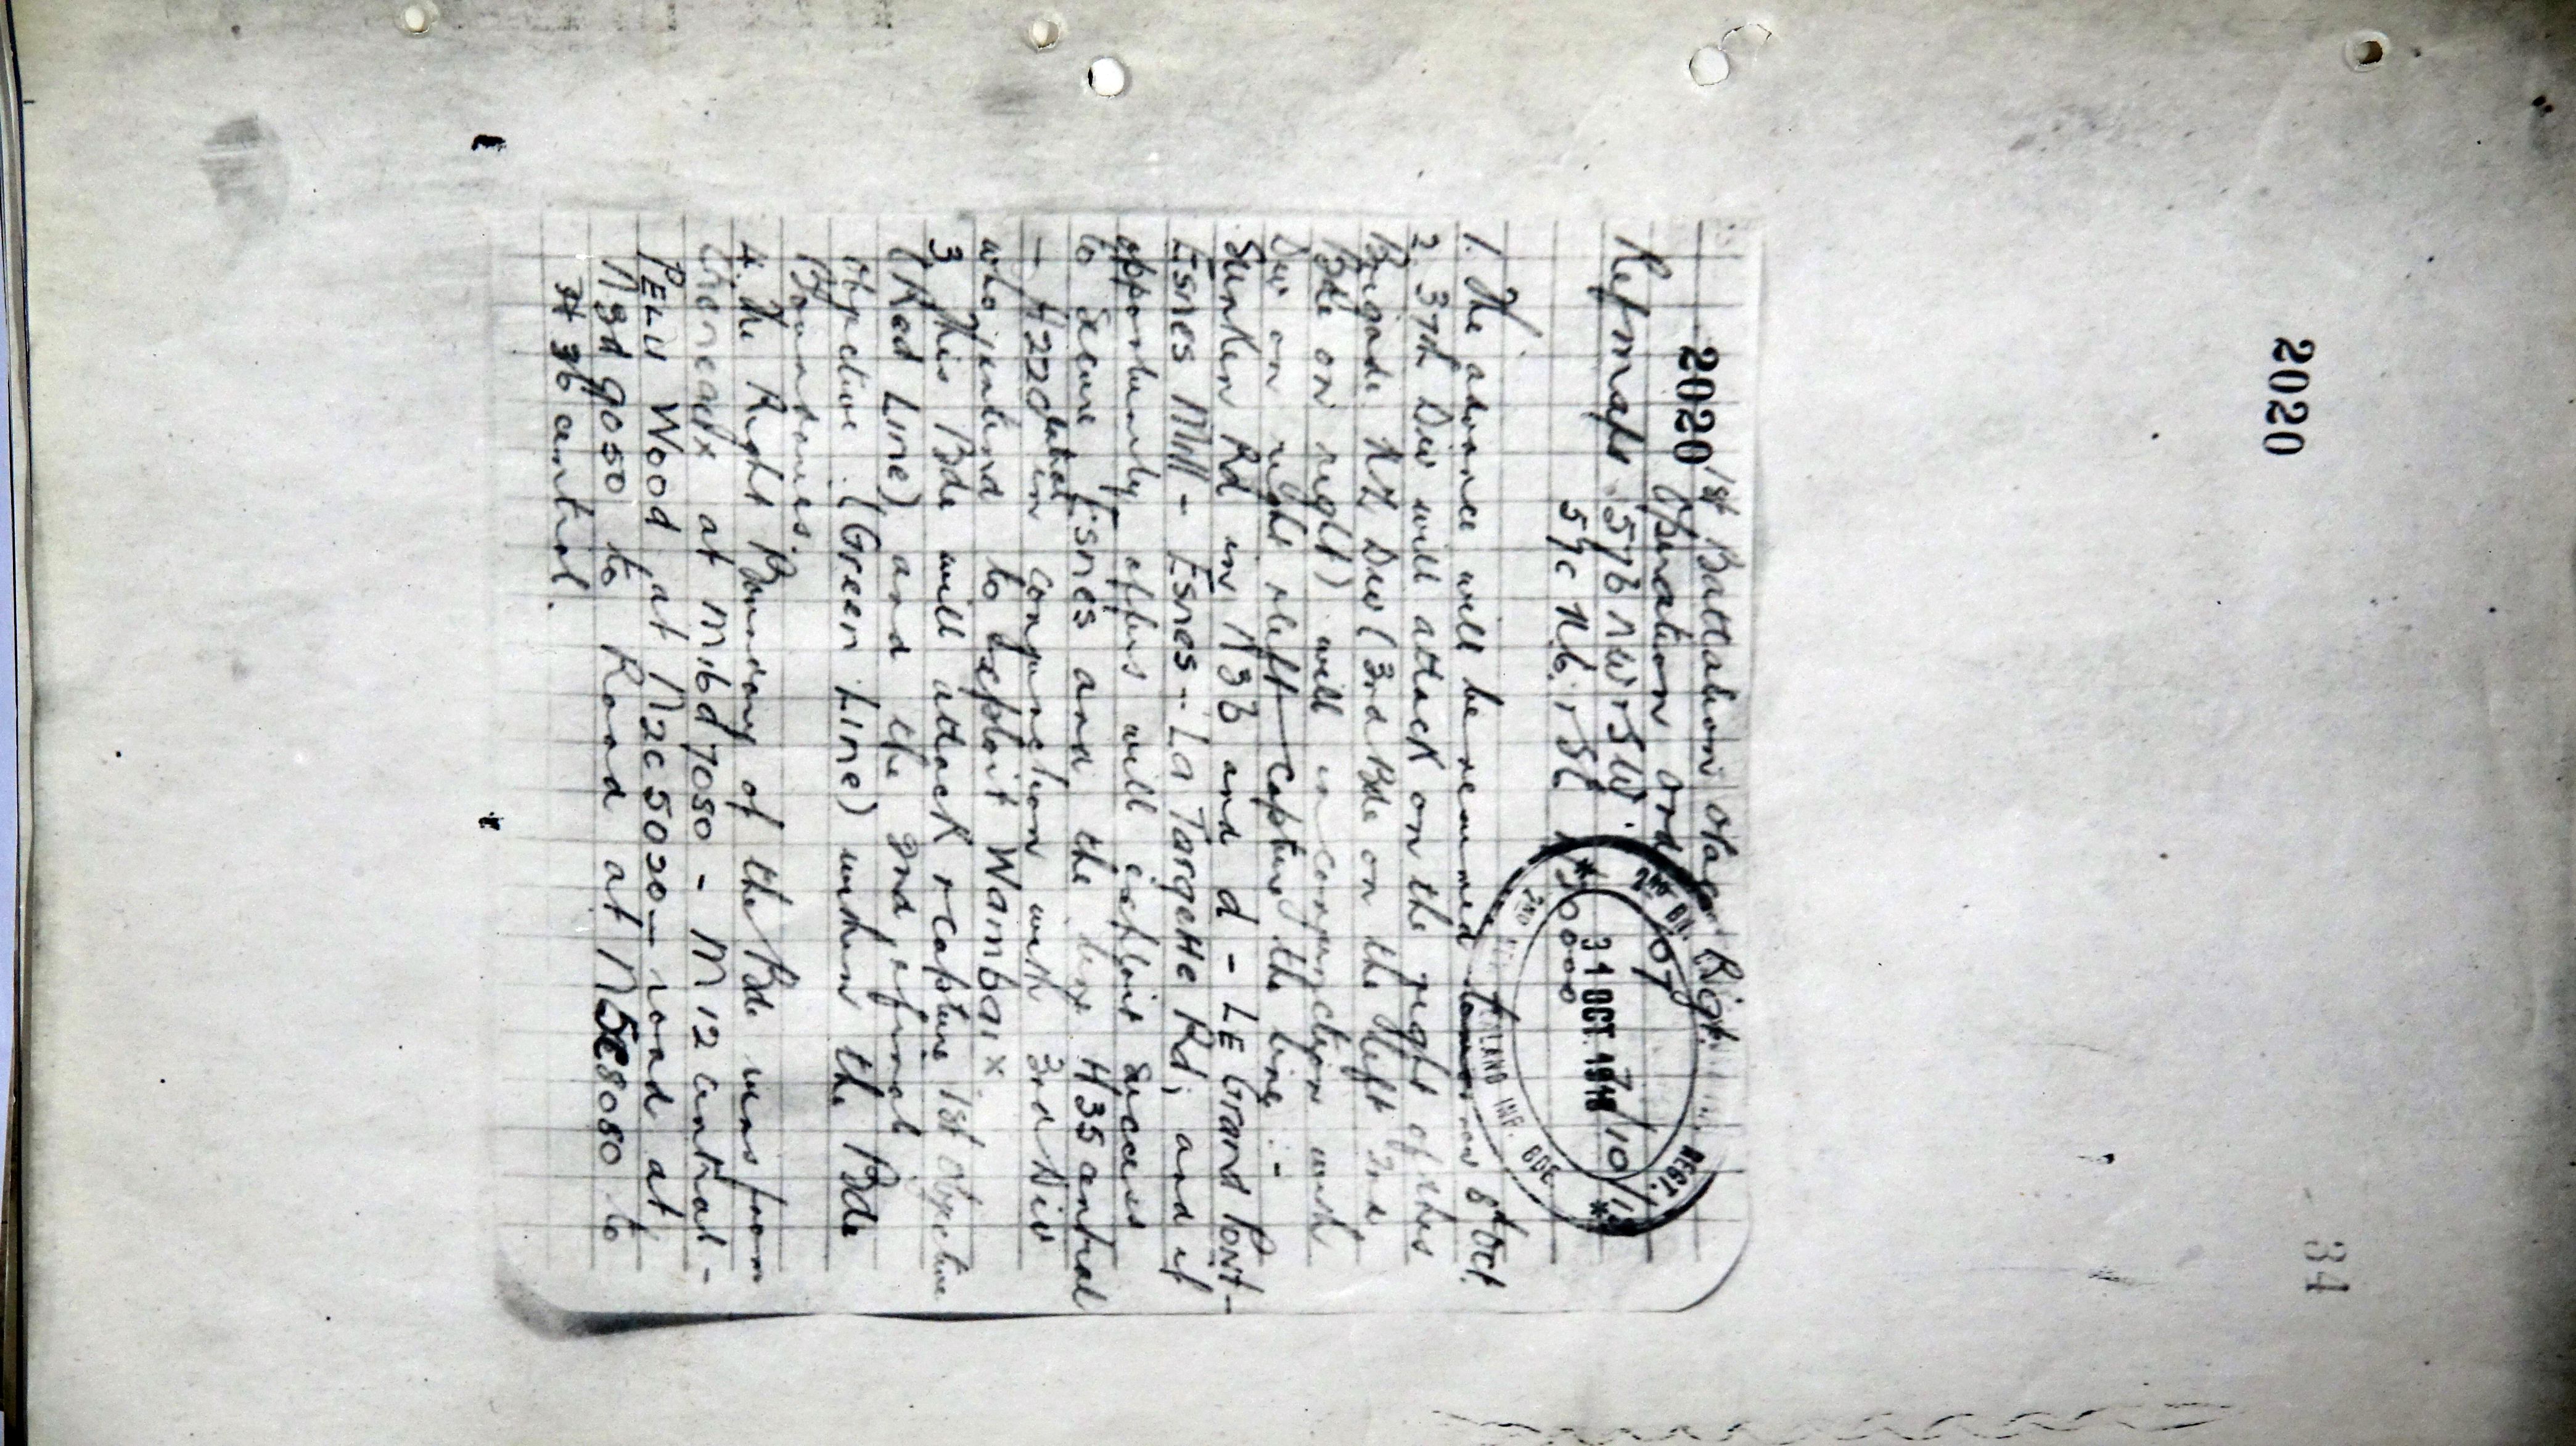 2020
34
2020 1st Battalion Otago Regt.
Operation ord 107
Ref maps 57b NW & SW. 7/10/18
57c NE & SE 1/20000
2ND BN. REGT.
31 OCT. 1918
2ND INF. BDE
1. The advance will be resumed 8th Oct.
2. 37th Div will attack on the right of this
Brigade. NZ Div (3rd Bde on the left 2nd
Bde on right) will in conjunction with
Div on right & left capture the line:-
Sunken Rd in N3b and d - LE Grand Pont -
Esnes Mill - Esnes - La Targette Rd, and if
opportunity offers will exploit success
to secure Esnes and the line H35 central
- H22d in conjunction with 3rd Div
who intend to exploit Wambaix
3 This Bde will attack & capture 1st objective
(Read Line) and the 2nd & final
objective (Green Line) within the Bde
Boundaries.
4. The Right Boundary of the Bde runs from
at M16d7080 - M12 central -
PELU Wood at N2c5020 - road at
N9d9050 to Road at N5c8080 to
H36 central.